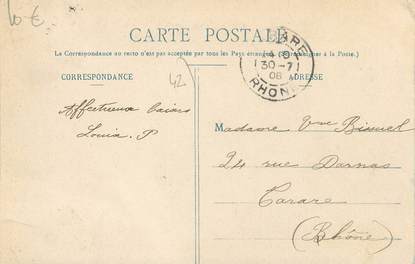 10 €
CARTE POSTALE
La Correspondance au recto n'est pas acceptée par tous les Pays étrangers (Se renseigner à la Poste.)
CORRESPONDANCE
ADRESSE
42
TARARE
30 -7
08
RHONE
Affectueux baisers
Louis. P
Madame Vve
24 rue Darnas
Tarare
(Rhône)